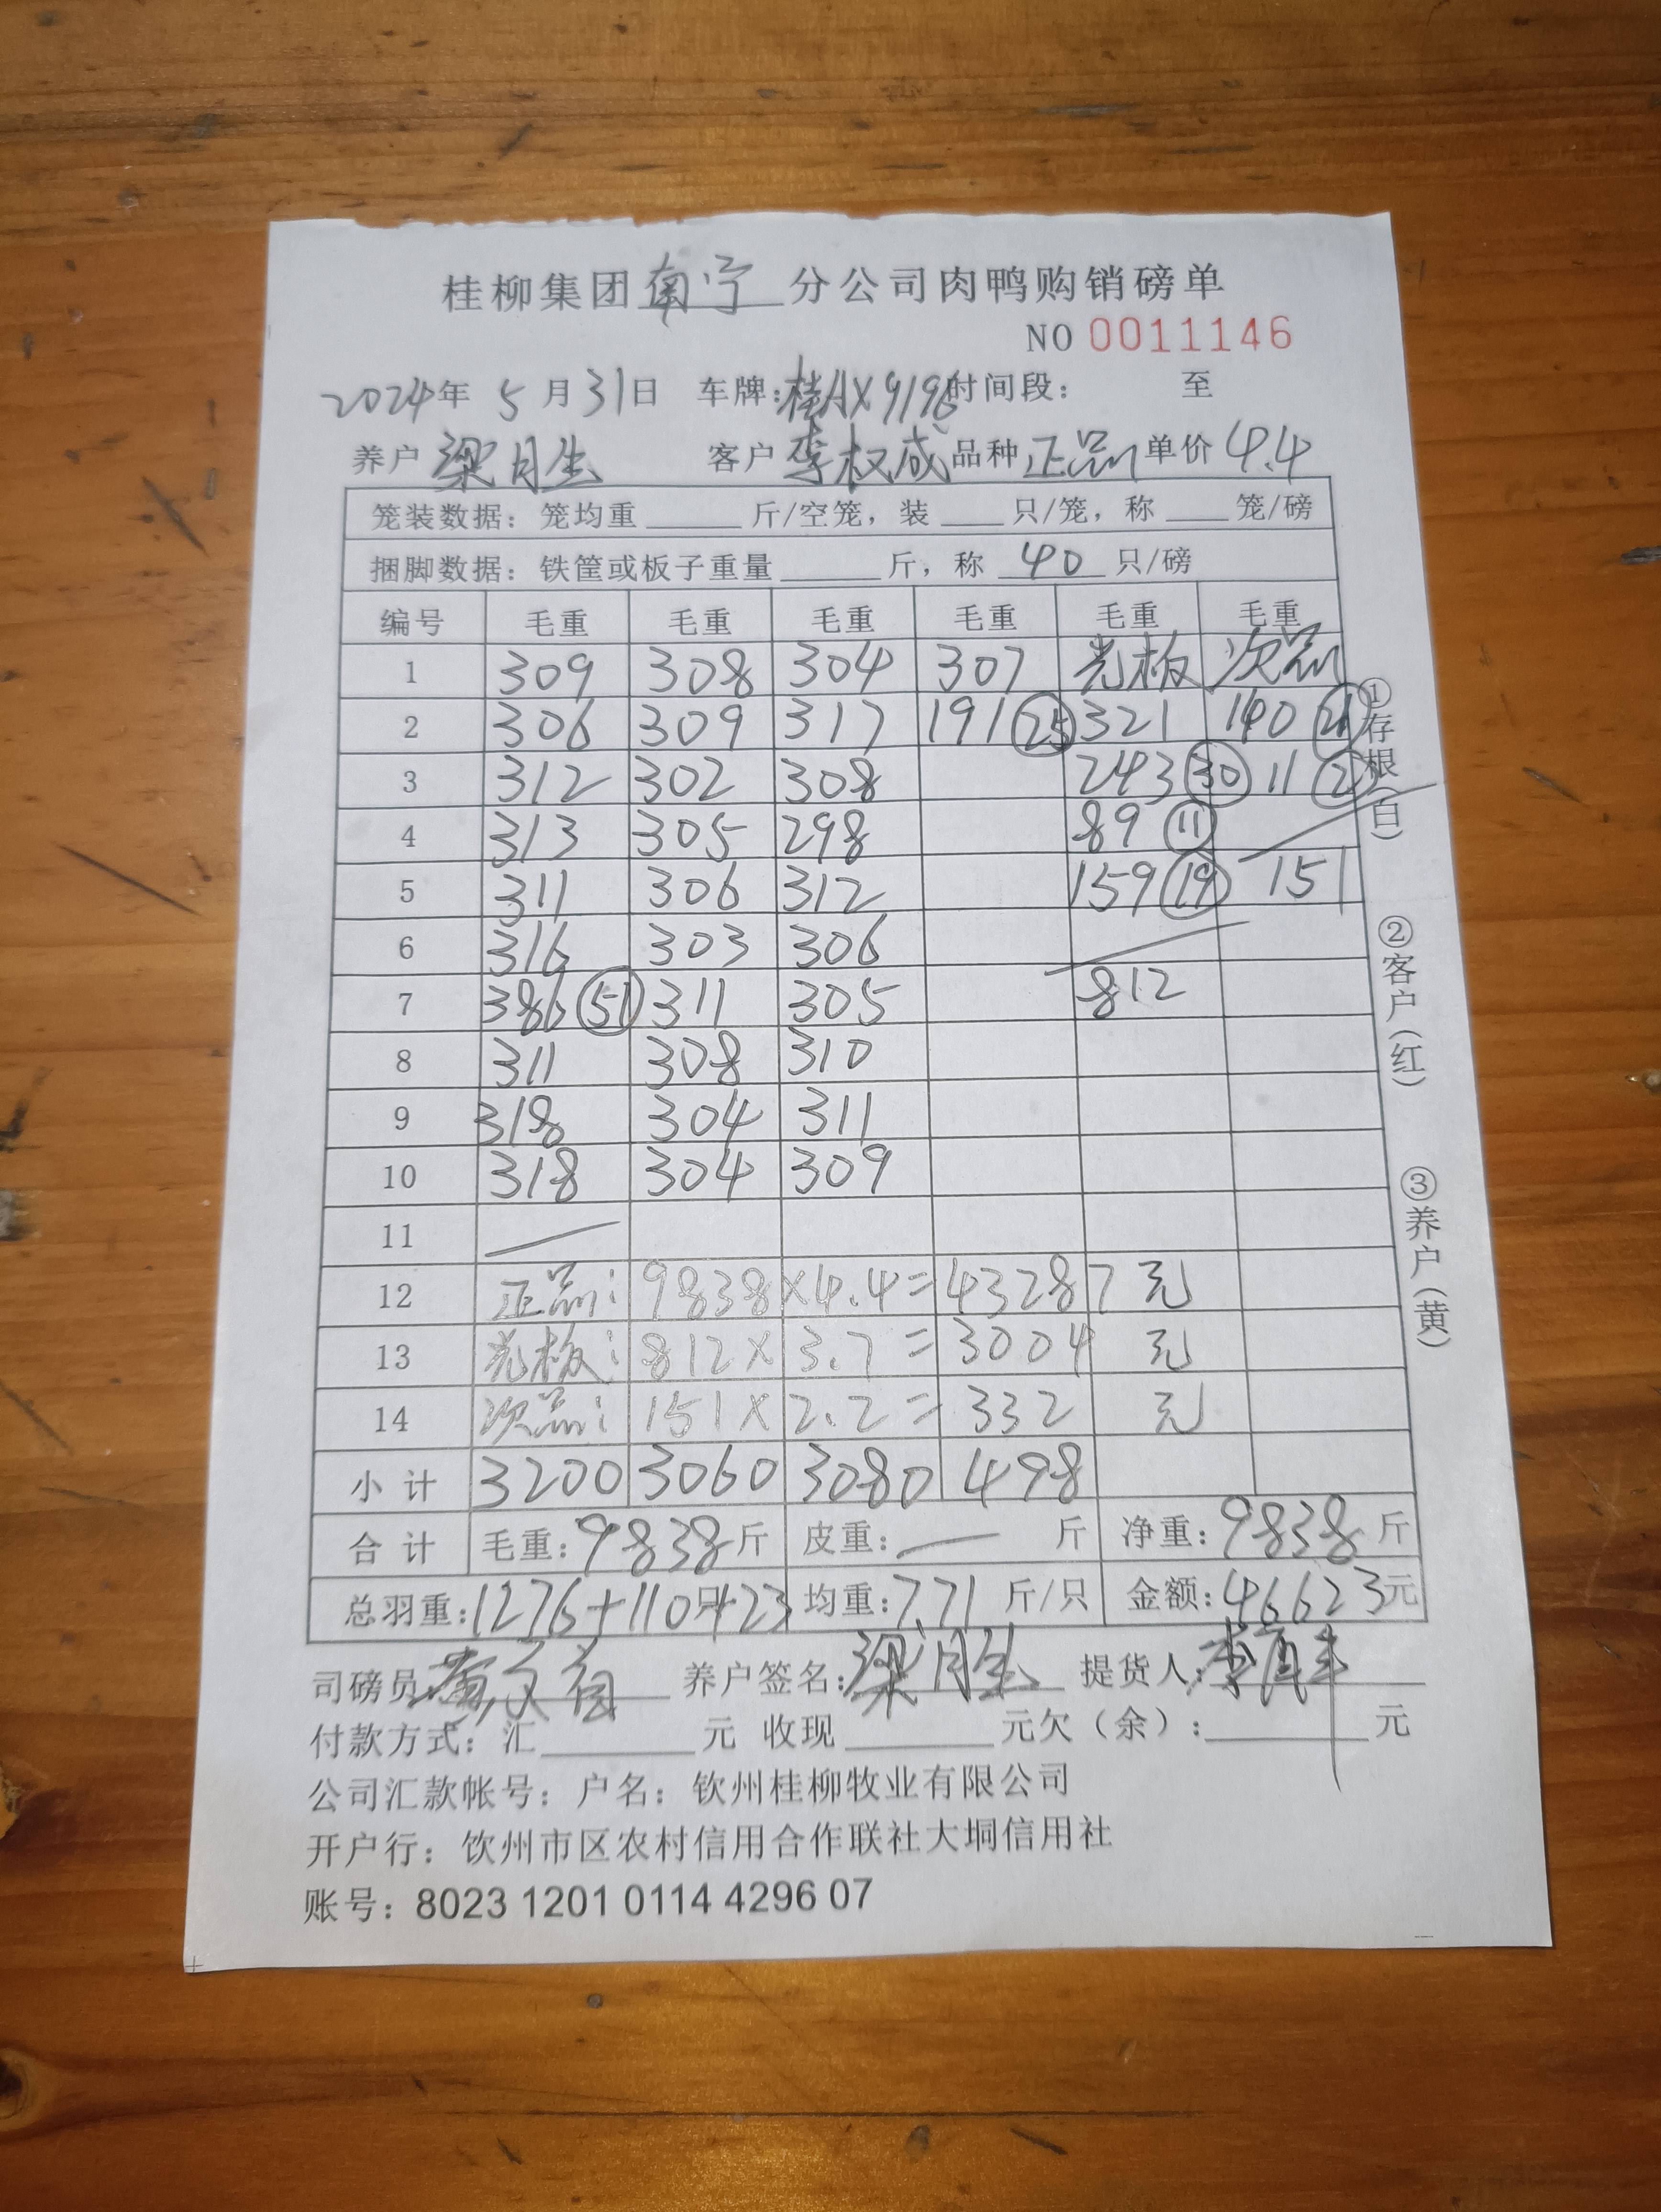 桂柳集团南宁分公司肉鸭购销磅单
NO 0011146
2024年 5月31日 车牌:桂AX9196时间段: 至
养户 梁月生 客户 李权成 品种 正品 单价 4.4
笼装数据: 笼均重 斤/空笼, 装 只/笼, 称 笼/磅
捆脚数据: 铁筐或板子重量 斤, 称 40 只/磅
编号 毛重 毛重 毛重 毛重 毛重 毛重
1 309 308 304 307 光板 次品
2 306 309 317 191 25 321 140 21
3 312 302 308 243 30 11 2
4 313 305 298 89 11
5 311 306 312 159 19 151
6 316 303 306
7 386 51 311 305 812
8 311 308 310
9 318 304 311
10 318 304 309
11
12 正品: 9838×4.4=43287元
13 光板: 812×3.7=3004元
14 次品: 151×2.2=332元
小计 3200 3060 3080 498
合计 毛重: 9838斤 皮重: — 斤 净重: 9838斤
总羽重: 1276+110只+23 均重: 7.71 斤/只 金额: 46623元
司磅员: 养户签名: 梁月生 提货人:
付款方式: 汇 元 收现 元欠(余): 元
公司汇款帐号: 户名: 钦州桂柳牧业有限公司
开户行: 钦州市区农村信用合作联社大垌信用社
账号: 8023 1201 0114 4296 07
①存根(白)
②客户(红)
③养户(黄)